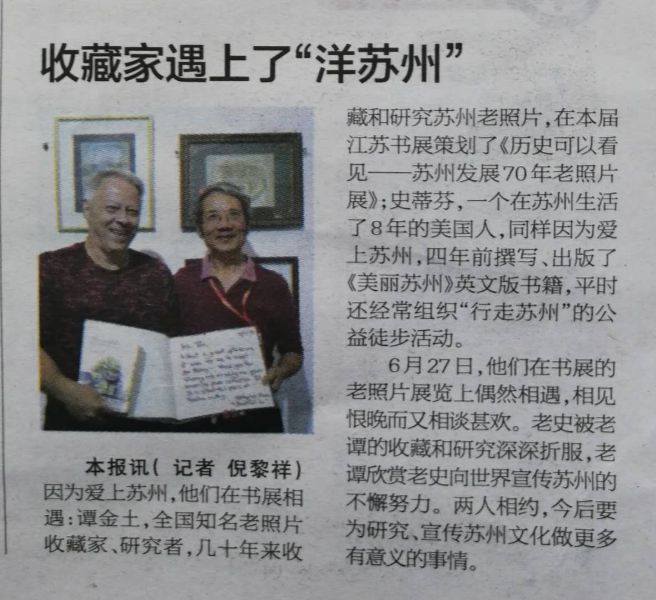 收藏家遇上了“洋苏州”
本报讯( 记者 倪黎祥)
因为爱上苏州,他们在书展相
遇:谭金土,全国知名老照片
收藏家、研究者,几十年来收
藏和研究苏州老照片,在本届
江苏书展策划了《历史可以看
见——苏州发展70年老照片
展》;史蒂芬,一个在苏州生活
了8年的美国人,同样因为爱
上苏州,四年前撰写、出版了
《美丽苏州》英文版书籍,平时
还经常组织“行走苏州”的公
益徒步活动。
6月27日,他们在书展的
老照片展览上偶然相遇,相见
恨晚而又相谈甚欢。老史被老
谭的收藏和研究深深折服,老
谭欣赏老史向世界宣传苏州的
不懈努力。两人相约,今后要
为研究、宣传苏州文化做更多
有意义的事情。